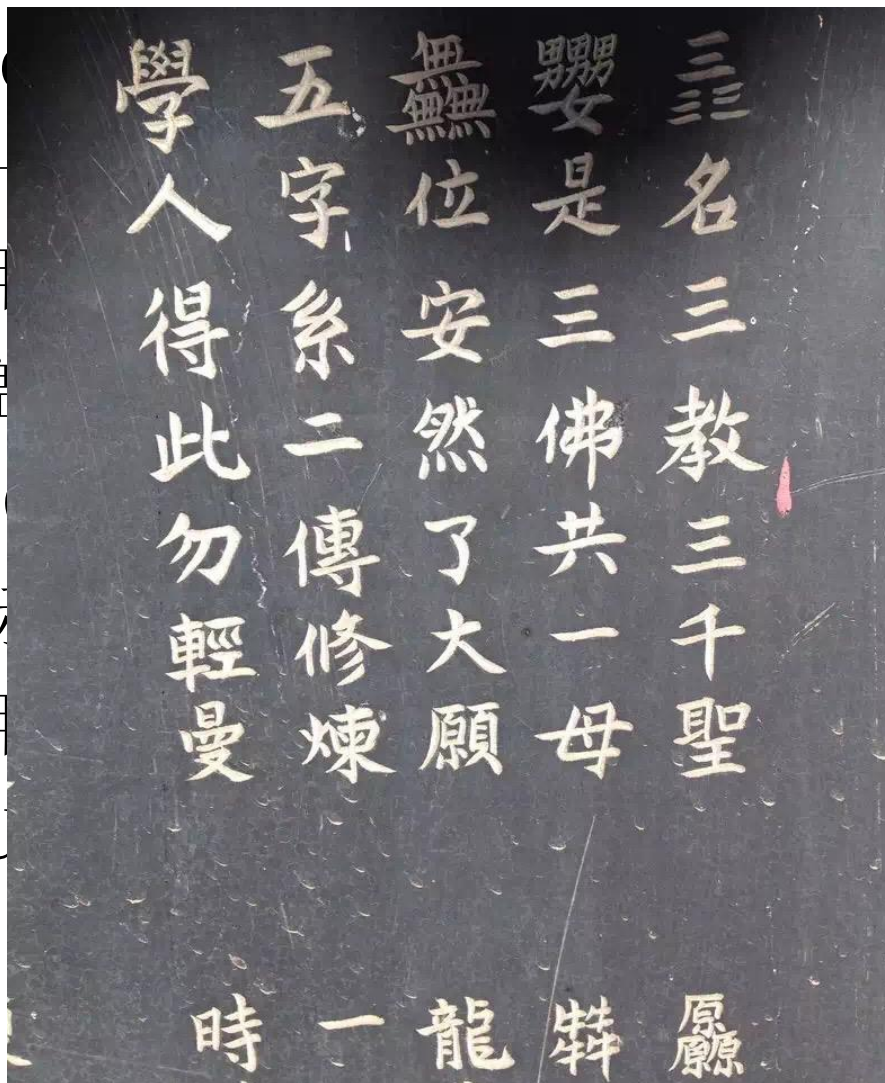 名三教三千聖
是三佛共一母
位安然了大願
五字系二傳修煉
學人得此勿輕曼
龍
一
時